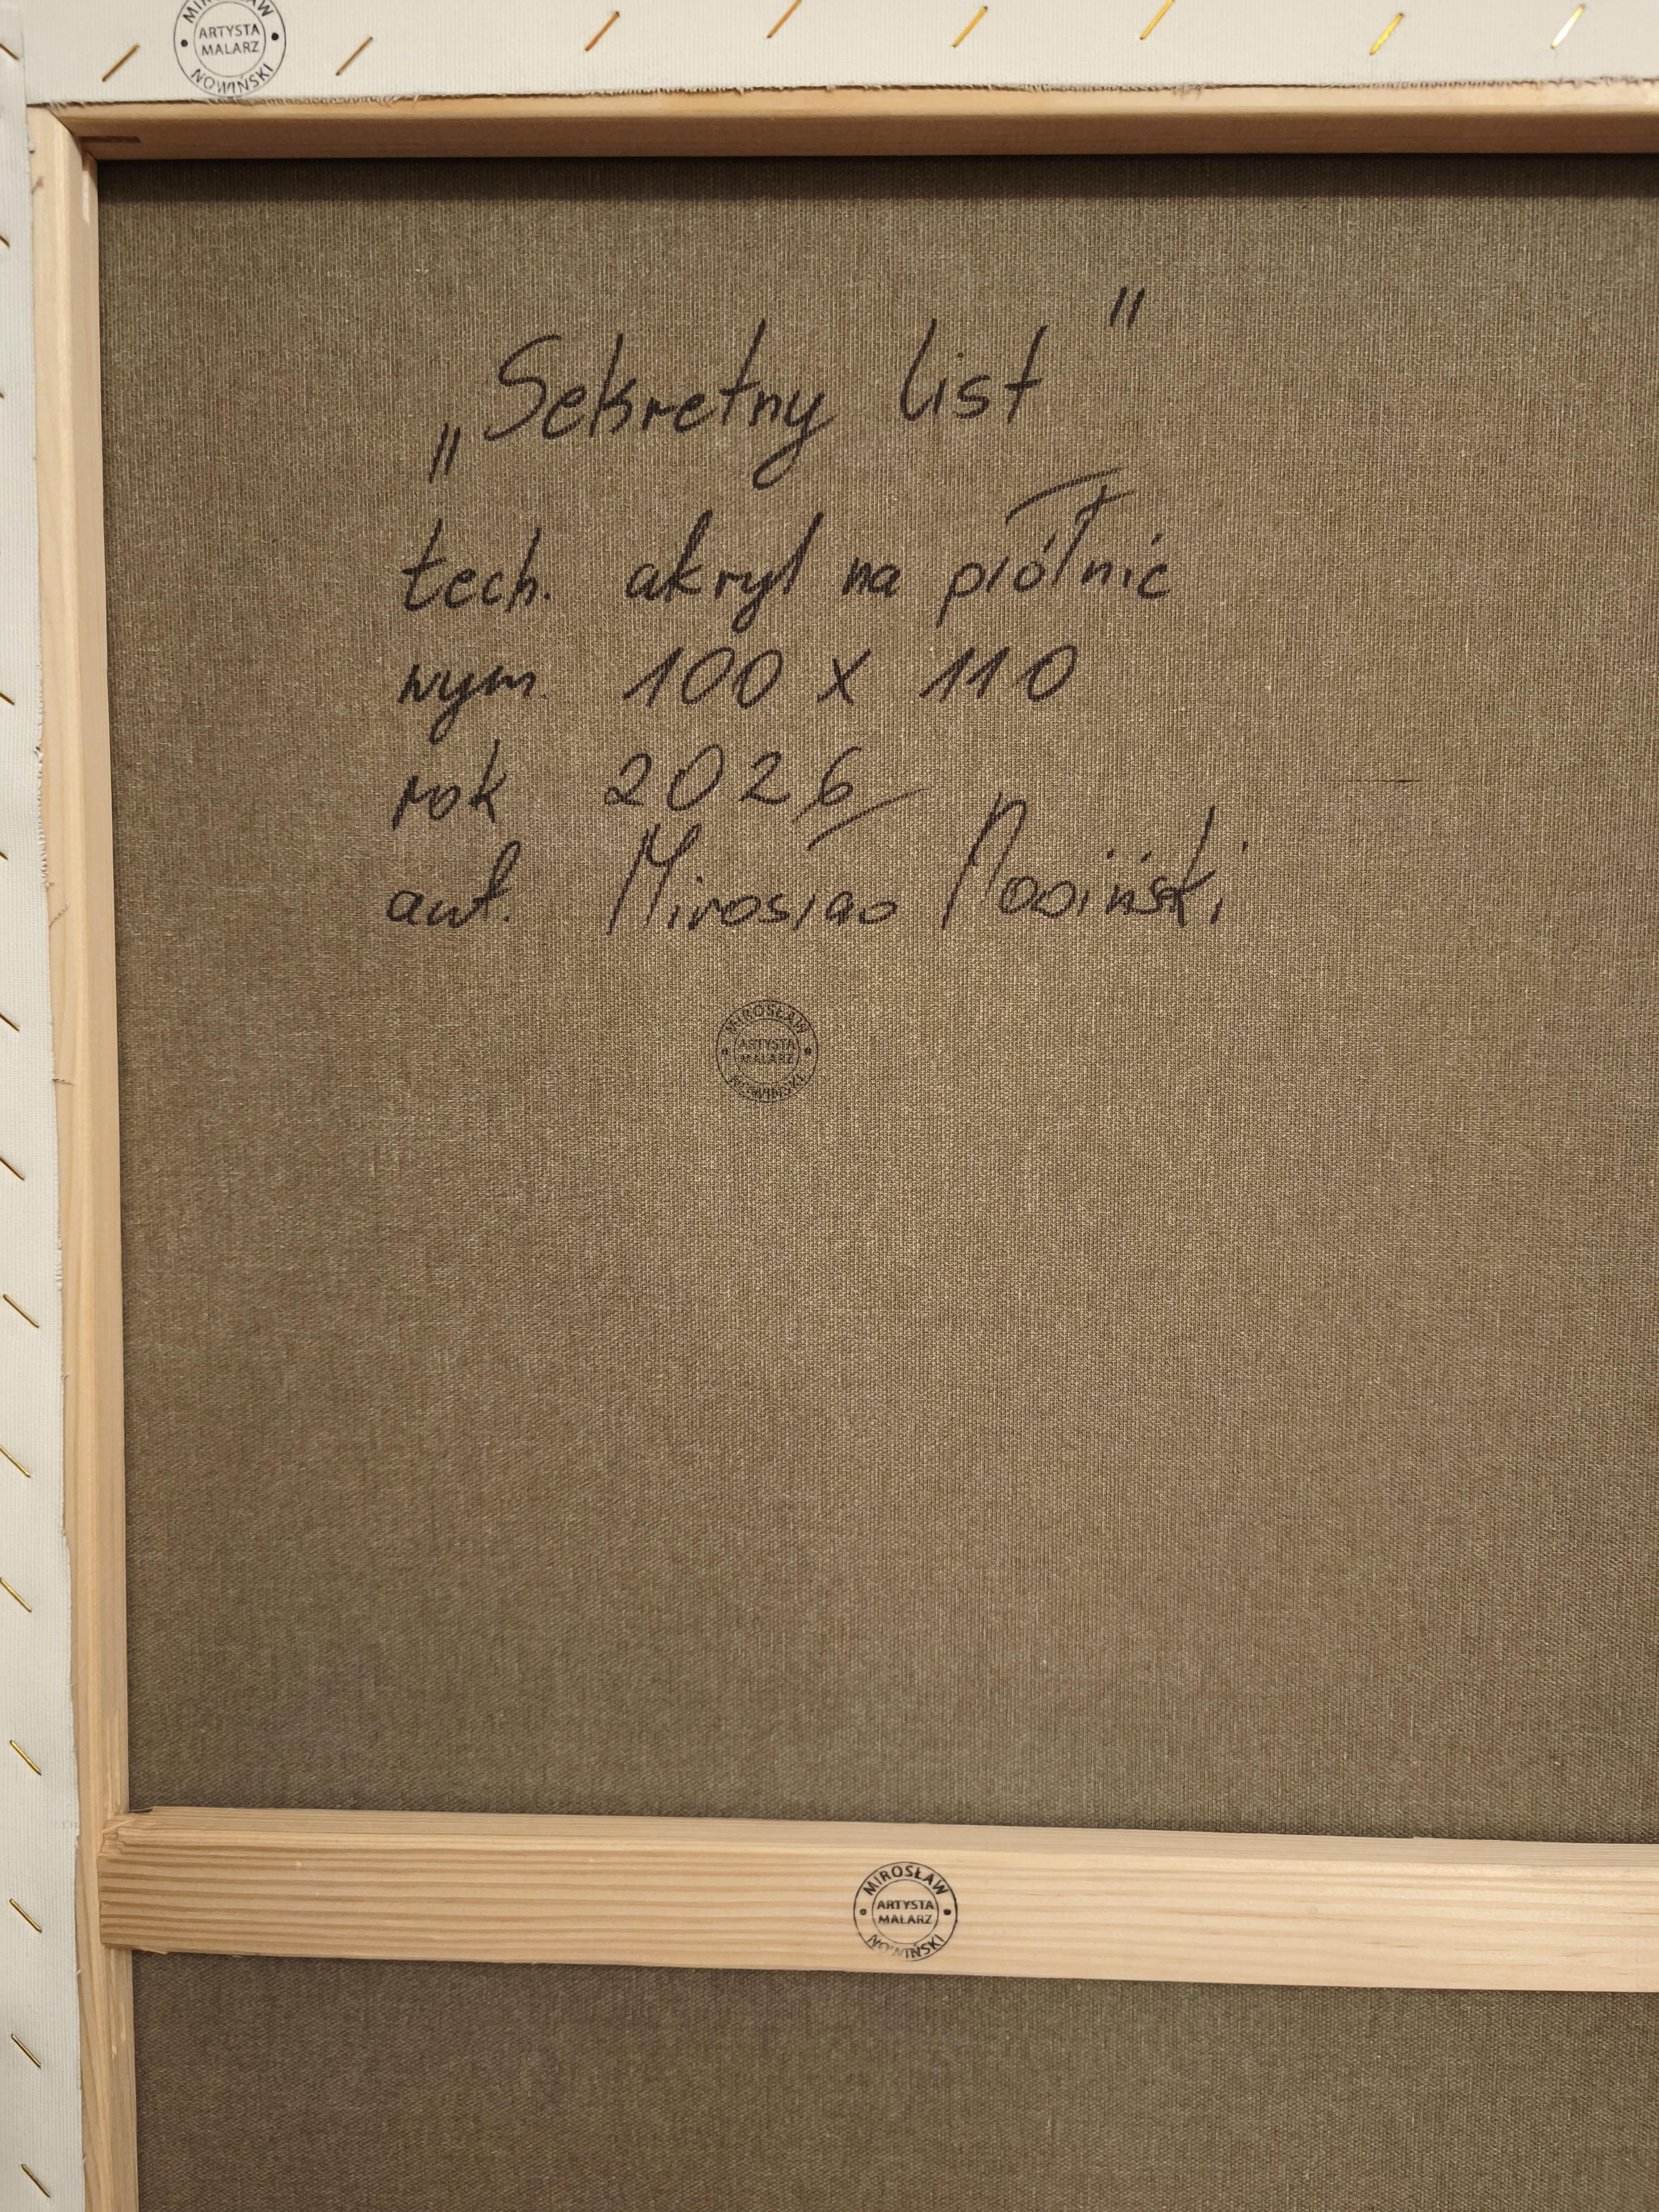 MIROSŁAW
ARTYSTA
MALARZ
NOWIŃSKI
„Sekretny list"
tech. akryl na płótnie
wym. 100 x 110
rok 2026
aut. Mirosław Nowiński
MIROSŁAW
ARTYSTA
MALARZ
NOWIŃSKI
MIROSŁAW
ARTYSTA
MALARZ
NOWIŃSKI